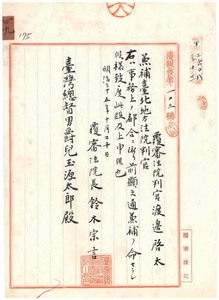 195
覆審法院判官渡邊啓太
兼補臺北地方法院判官
右ハ事務上ノ都合ニ依リ前顯之通兼補ノ命セラレ
候樣致度此段及上申候也
明治三十五年十月二十日
覆審法院長鈴木宗言
臺灣總督男爵兒玉源太郎殿
覆審法院